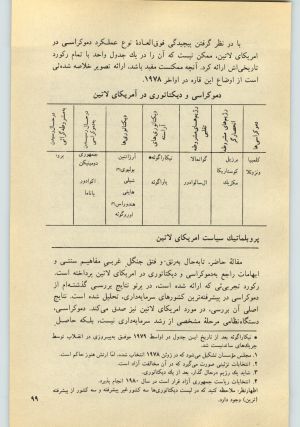 با در نظر گرفتن پیچیدگی فوق‌العادهٔ نوع عملکرد دموکراسی در
امریکای لاتین، ممکن نیست که آن را در یک جدول واحد با تمام رکورد
تاریخی‌اش ارائه کرد. آنچه ممکنست مفید باشد، ارائه تصویر خلاصه شده‌ئی
است از اوضاع این قاره در اواخر ۱۹۷۸.
دموکراسی و دیکتاتوری در آمریکای لاتین
دموکراسی‌ها
رژیم‌های مشروطه
دیکتاتوری‌های
دیکتاتوری‌ها
در حال رسیدن به‌دموکراسی
در حال رسیدن به‌مشروطه‌گرائی
کلمبیا
ونزوئلا
برزیل
کوستاریکا
مکزیک
گواتمالا
ال‌سالوادور
نیکاراگوئه*
پاراگوئه
آرژانتین
بولیوی
شیلی
هایتی
هندوراس
اوروگوئه
جمهوری
دومینیکن
اکوادور
پاناما
پرو
پروبلماتیک سیاست امریکای لاتین
مقالهٔ حاضر، تابه‌حال به‌رتق‌و فتق جنگل غریبی مفاهیم سنتی و
ابهامات راجع به‌دموکراسی و دیکتاتوری در امریکای لاتین پرداخته است.
رکورد تجربی‌ئی که ارائه شده است، در پرتو نتایج بررسی گذشته‌ام از
دموکراسی در پیشرفته‌ترین کشورهای سرمایه‌داری، تحلیل شده است. نتایج
اصلی آن بررسی، در مورد امریکای لاتین نیز صدق می‌کند. دموکراسی،
دستگاه‌نظامی مرحلهٔ مشخصی از رشد سرمایه‌داری نیست، بلکه حاصل
* نیکاراگوئه بعد از تاریخ این جدول در اواسط ۱۹۷۹ موفق به‌پیروزی در انقلاب توسط
چریک‌های ساندنیست شد.
۱. مجلس مؤسسان تشکیل می‌شود که در ژوئن ۱۹۷۸ انتخاب شده، لذا ارتش هنوز حاکم است.
۲. انتخابات تزئینی صورت می‌گیرد که در آن مخالفت آزاد است.
۳. شاید یک رژیم مرحل گذار، بعد از یک دیکتاتوری.
۴. انتخابات ریاست جمهوری آزاد قرار است در سال ۱۹۸۰ انجام پذیرد.
اظهارنظر: ملاحظه کنید که در لیست دیکتاتوری‌ها سه کشور غیر پیشرفته و سه کشور از پیشرفته
(ترین) وجود دارد.
۹۹